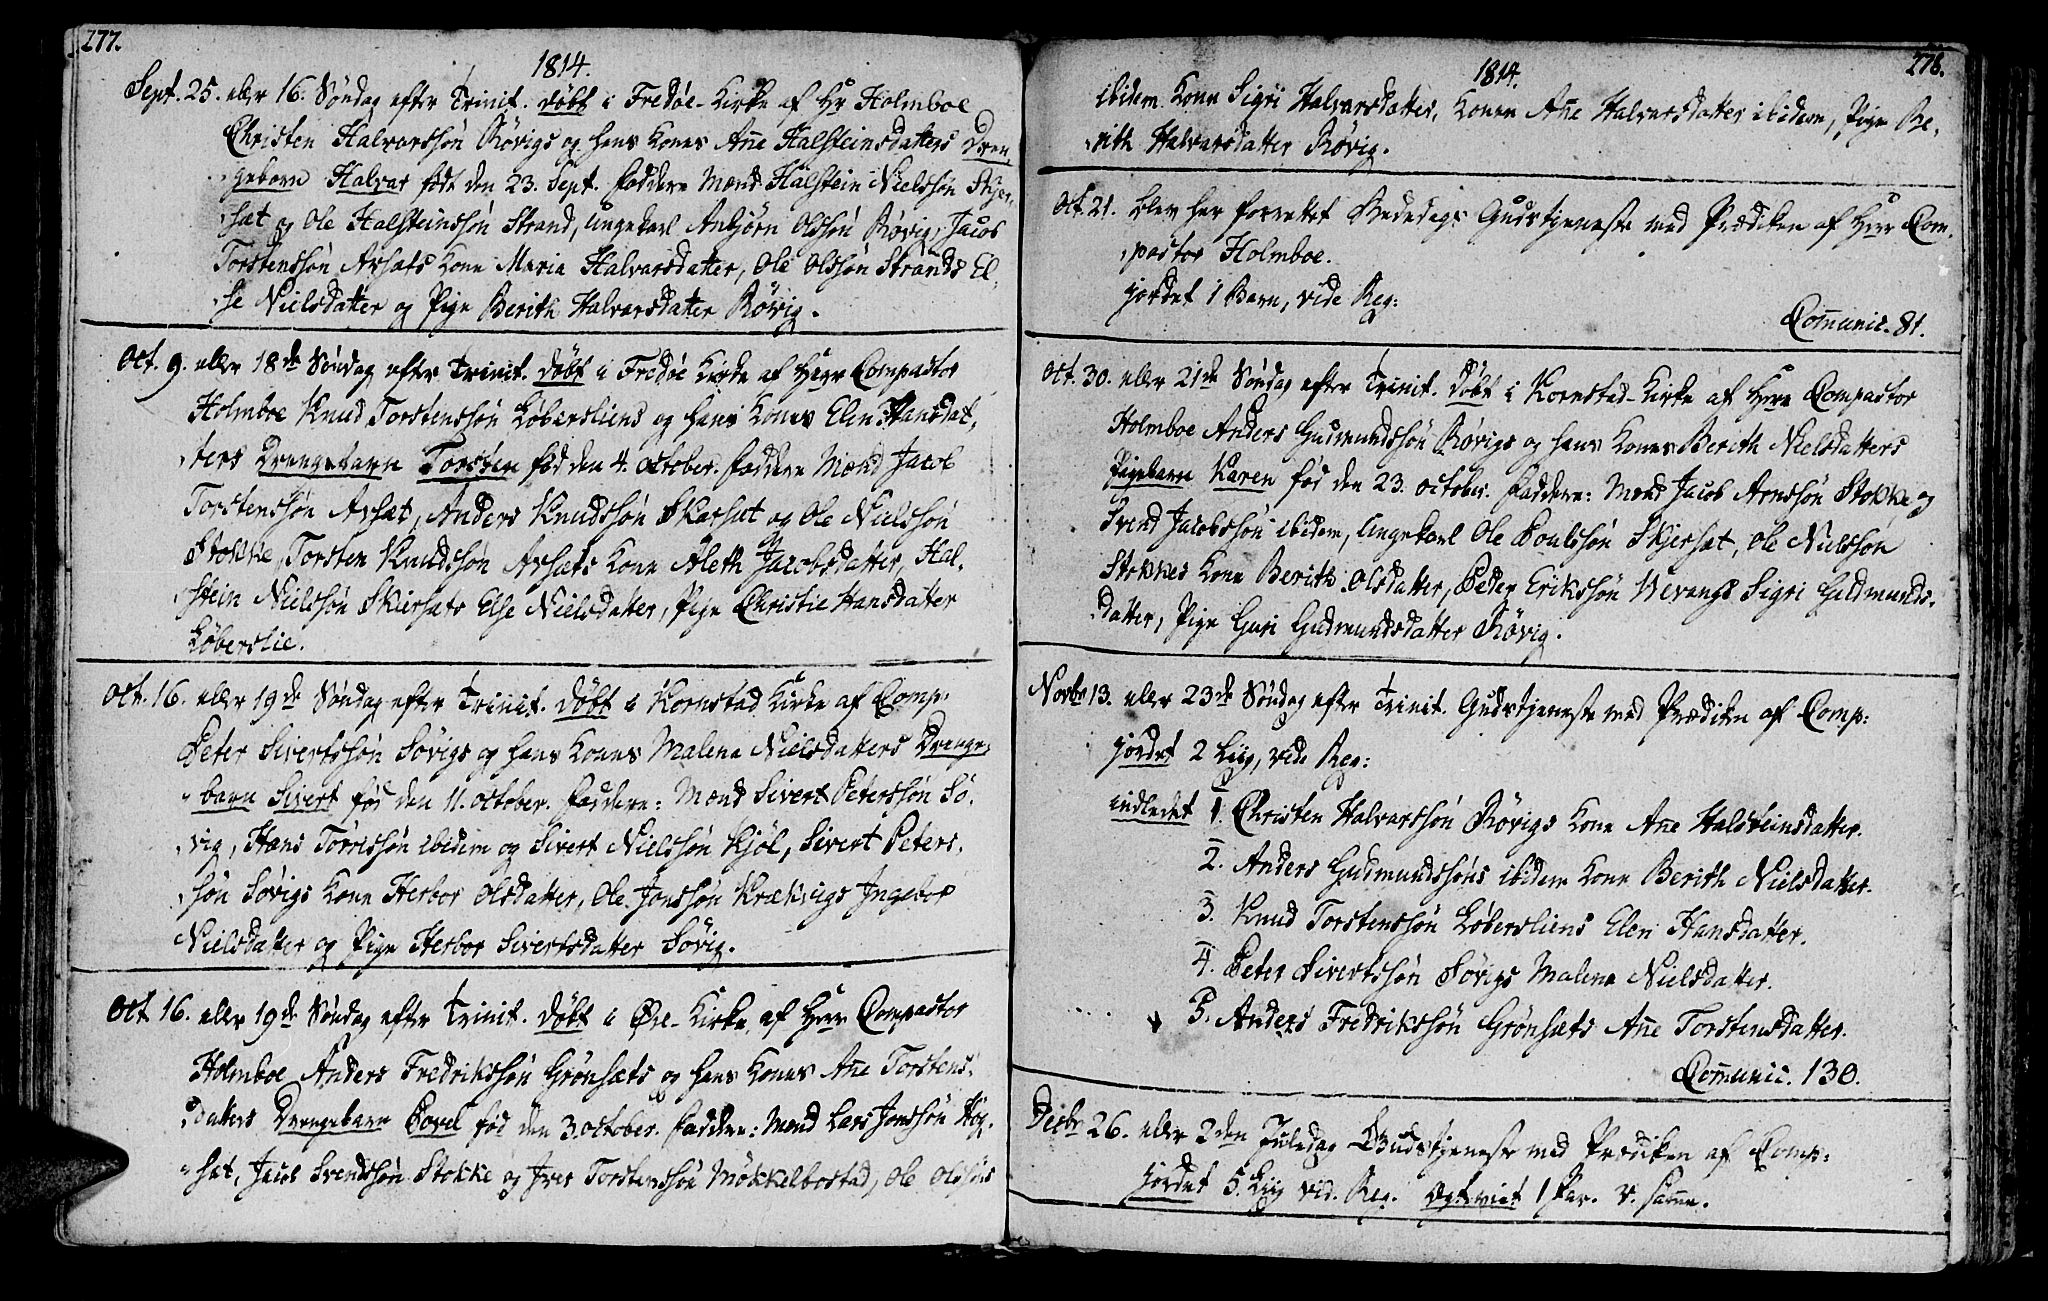 277.
1814.
Sept. 25. eller 16. Søndag efter Trinit. døbt i Fredøe-Kirke af Hr Holmboe
Christen Halvarssøn Røvigs og hans Kones Ane Halsteinsdatters Dren,
,gebarn Halvar født den 23. Sept. Faddere Mænd Halstein Nielssøn Skjer,
,sæt og Ole Halsteinssøn Strand, Ungekarl Anbjørn Olssøn Røvig, Jacob
Torstenssøn Arsæts Kone Maria Halvarsdatter, Ole Olssøn Strands El,
,se Nielsdatter og Pige Berith Halvarsdatter Røvig.
Oct. 9. eller 18de Søndag efter Trinit. døbt i Fredøe Kirke af Herr Compastor
Holmboe Knud Torstenssøn Løbersliens og hans Kones Elen Hansdat,
,ters Drengebarn Torsten fød den 4. October. Faddere Mænd Jacob
Torstenssøn Arsæt, Anders Knudssøn Skarsæt og Ole Nielssøn
Stokke, Torsten Knudssøn Arsæts Kone Aleth Jacobsdatter, Hal,
,stein Nielssøn Skiersæts Else Nielsdatter, Pige Christie Hansdatter
Løberslie.
Oct. 16. eller 19de Søndag efter Trinit. døbt i Kornstad Kirke af Comp:
Peter Sivertssøn Søvigs og hans Kones Malena Nielsdatters Drenge,
,barn Sivert fød den 11. October. Faddere: Mænd Sivert Peterssøn Sø,
,vig, Hans Tørrissøn ibidem og Sivert Nielssøn Kjøl, Sivert Peters,
,søn Søvigs Kone Herbor Olsdatter, Ole Jonssøn Krækvigs Ingebor
Nielsdatter og Pige Herbor Sivertsdatter Søvig.
Oct 16. eller 19de Søndag efter Trinit. døbt i Øre-Kirke af Herr Compastor
Holmboe Anders Fredrikssøn Grønsæts og hans Kones Ane Torstens,
,datters Drengebarn Povel fød den 3. October. Faddere: Mænd Lars Jonssøn Høg,
,sæt, Jacob Svendssøn Stokke og Iver Torstenssøn Møkkelbostad, Ole Olssøns
278.
1814.
ibidem Kone Sigri Halvarsdatter, Konen Ane Halvarsdatter ibidem, Pige Be,
,rith Halvarsdatter Røvig.
Oct. 21. blev her forrettet Bededags Gudstjeneste med Prædiken af Herr Com,
,pastor Holmboe.
jordet 1 Barn, vide Reg:
Comunic. 81.
Oct. 30. eller 21de Søndag efter Trinit. døbt i Kornstad-Kirke af Herr Compastor
Holmboe Anders Gudmundssøn Røvigs og hans Kones Berith Nielsdatters
Pigebarn Karen fød den 23. October. Faddere: Mænd Jacob Arnssøn Stokke og
Svend Jacobssøn ibidem, Ungekarl Ole Poulssøn Skjersæt, Ole Nielssøn
Stokkes Kone Berith Olsdatter, Peder Erikssøn Nevangs Sigri Guldmunds,
,datter, Pige Guri Gudmundsdatter Røvig.
Novbr 13. eller 23de Søndag efter Trinit. Gudstjeneste med Prædiken af Comp:
jordet 2 Liig, vide Reg:
indledet 1. Christen Halvarssøn Røvigs Kone Ane Halsteinsdatter.
2. Anders Gudmundssøns ibidem Kone Berith Nielsdatter.
3. Knud Torstenssøn Løbersliens Elen Hansdatter.
4. Peter Sivertssøn Søvigs Malena Nielsdatter.
5. Anders Fredrikssøn Grønsæts Ane Torstensdatter.
Comunic. 130.
Decbr 26. eller 2den Juledag Gudstjeneste med Prædiken af Comp:
jordet 5. Liig vid. Reg. Ægteviet 1 Par. v. same.